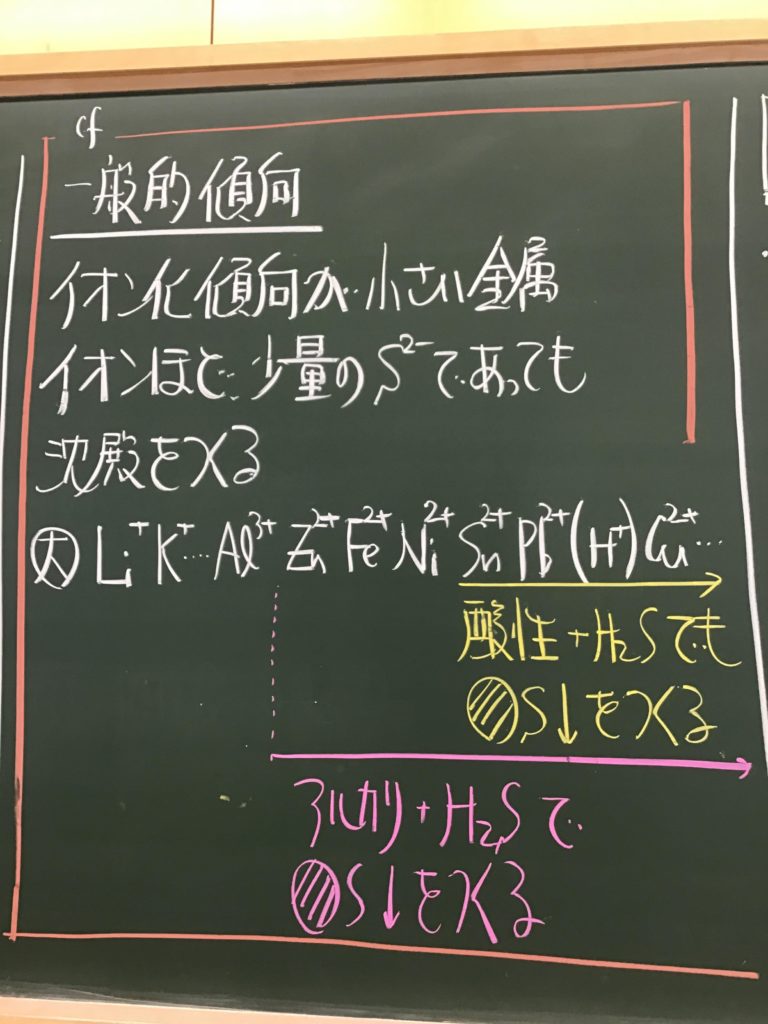 cf
一般的傾向
イオン化傾向が小さい金属
イオンほど少量のS²⁻であっても
沈殿をつくる
㊅ Li⁺ K⁺… Al³⁺ Zn²⁺ Fe²⁺ Ni²⁺ Sn²⁺ Pb²⁺ (H⁺) Cu²⁺…
酸性+H₂Sでも
S↓をつくる
アルカリ+H₂Sで
S↓をつくる